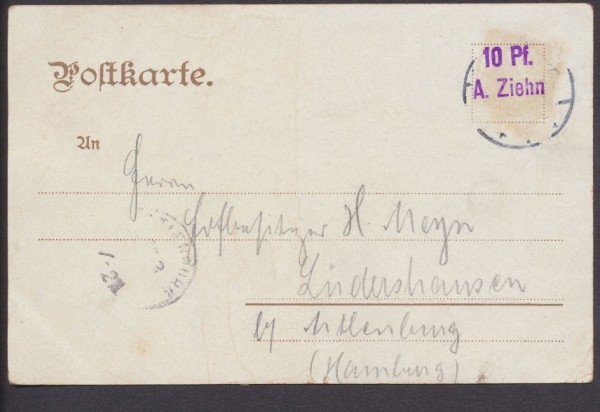 Postkarte.
10 Pf.
A. Ziehn
An
Herrn
Hofbesitzer H. Meyn
Lüdershausen
by Artlenburg
(Hamburg)